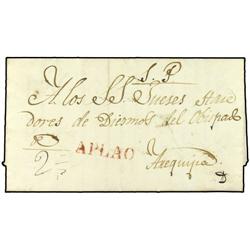 S. P.
A los SS. Jueses Hasen
dores de Diezmos del Obispado
2
APLAO
Arequipa